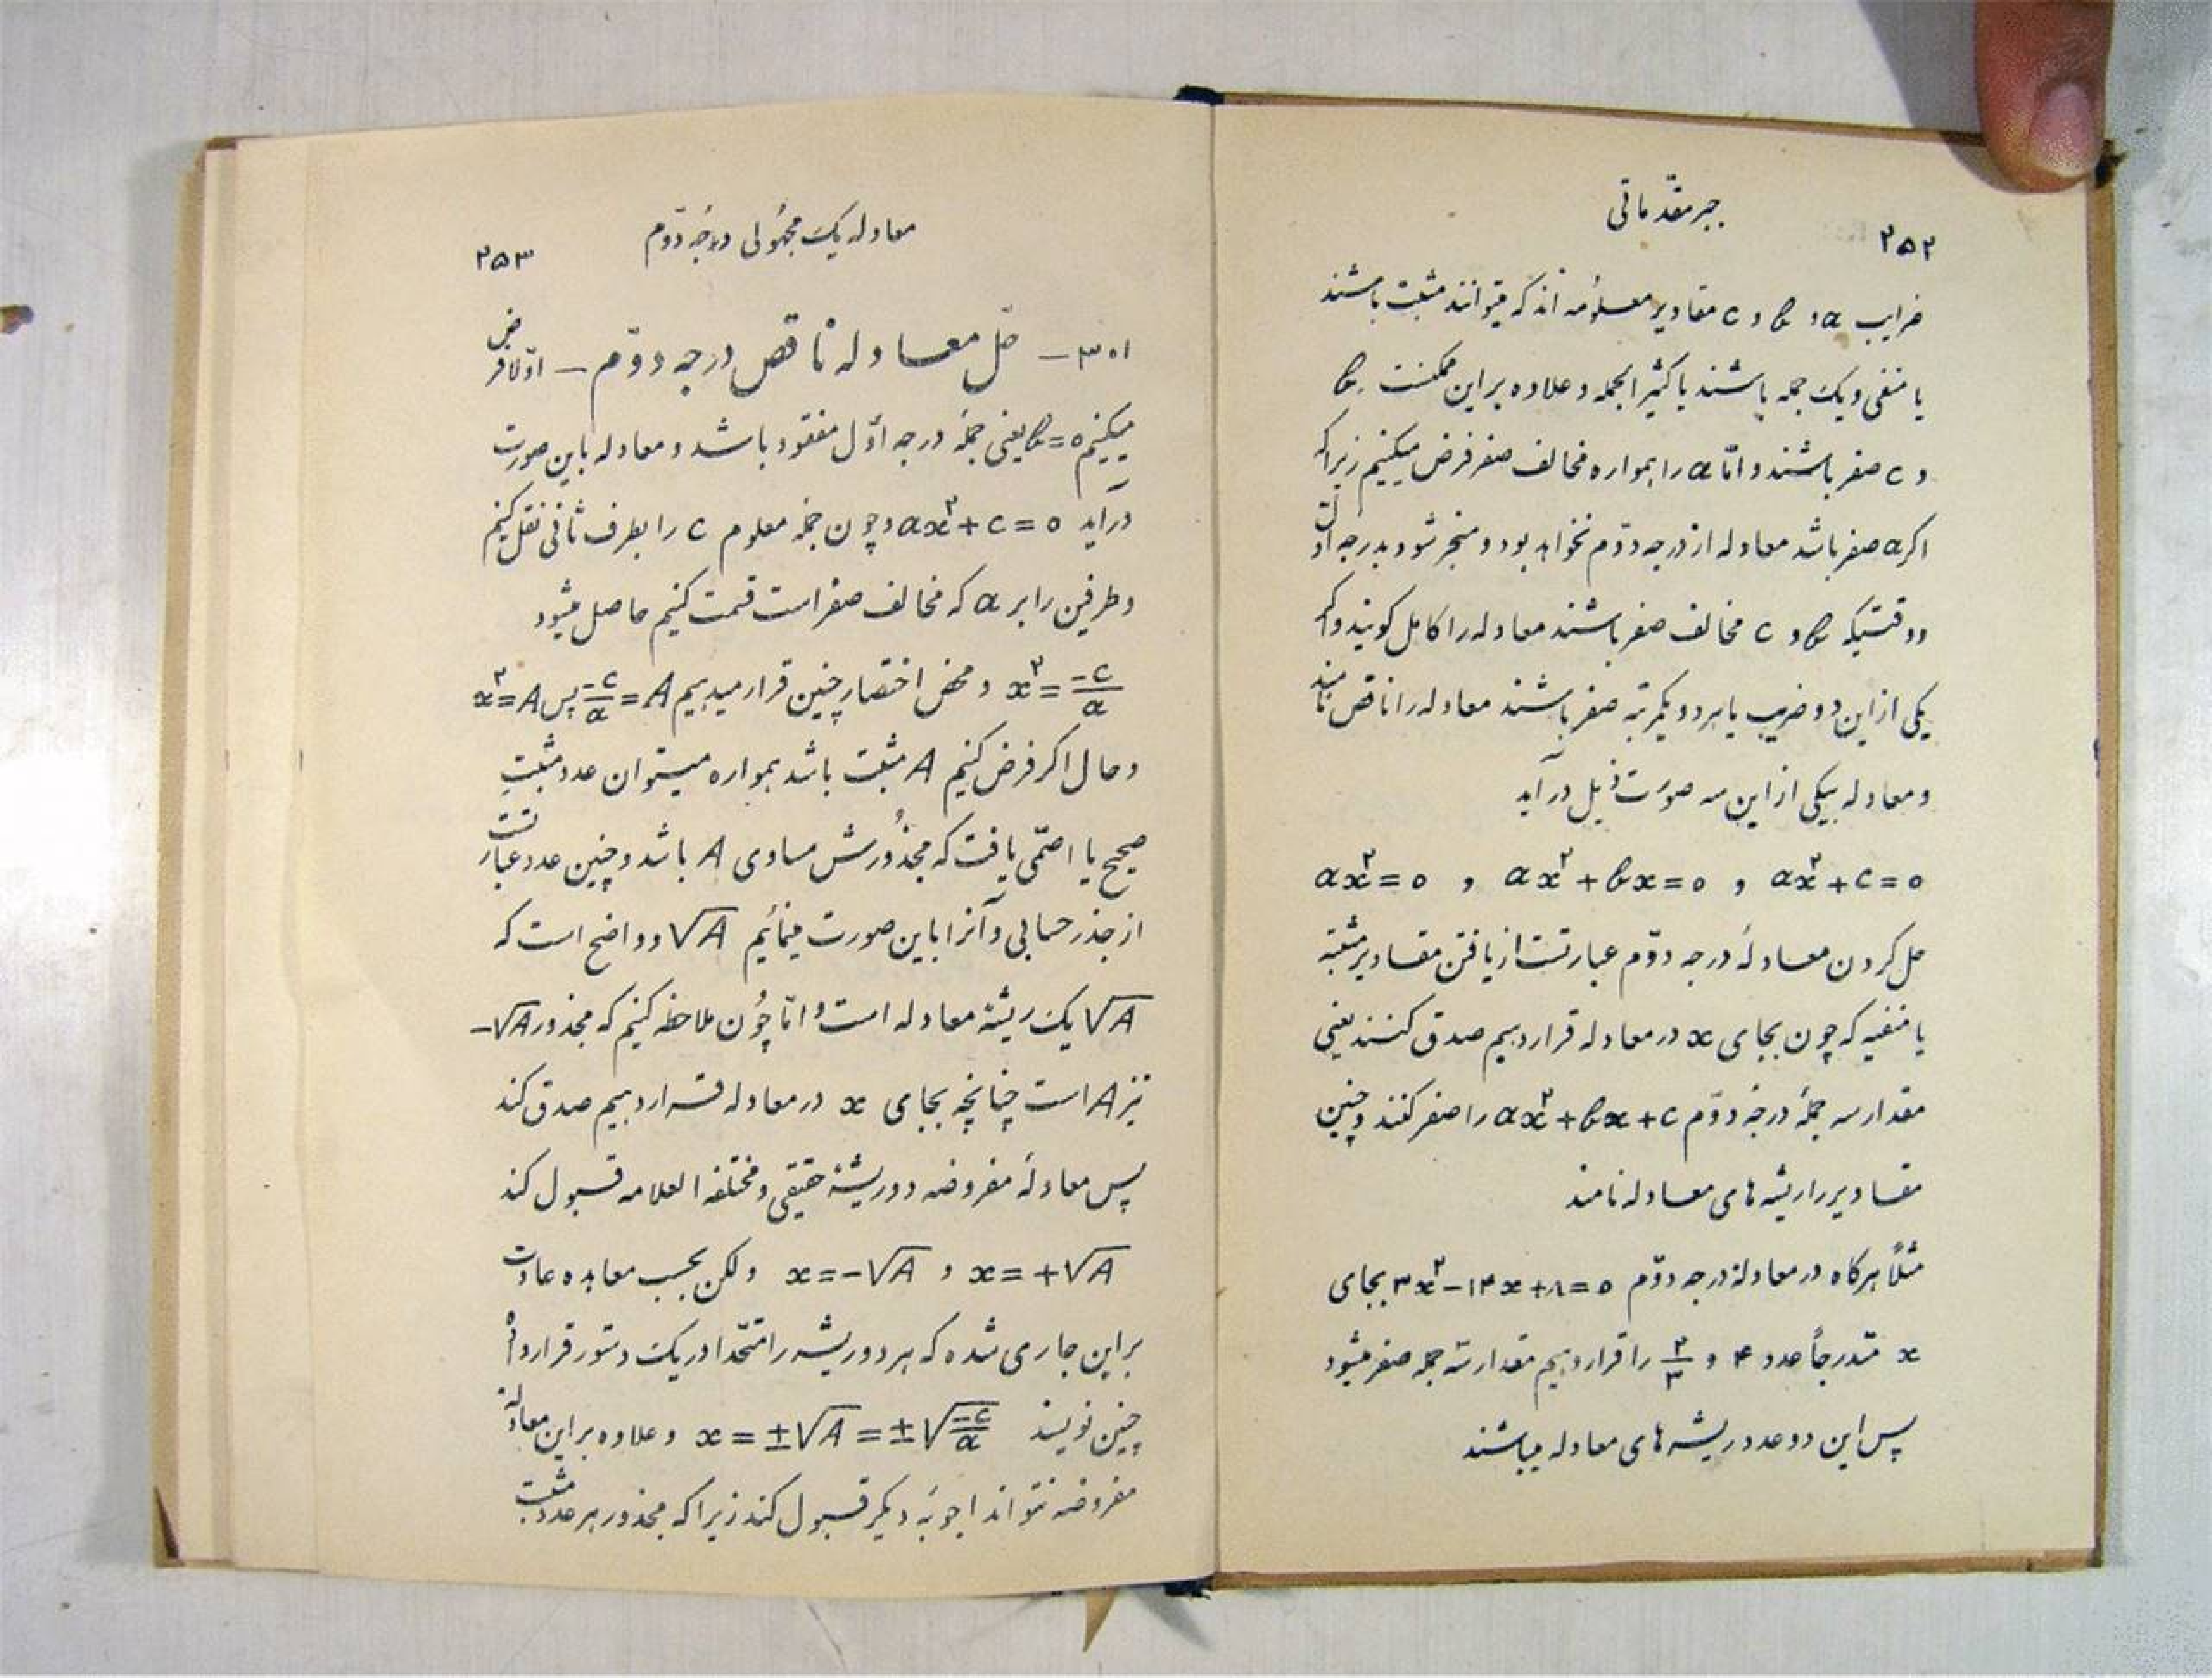 ۲۵۲
جبر مقدّماتی
ضرایب a و b و c مقادیر معلومه‌اند که میتوانند مثبت باشند
یا منفی و یک جمله باشند یا کثیر الجمله و علاوه بر این ممکنست b
و c صفر باشند و امّا a را همواره مخالف صفر فرض میکنیم زیرا که
اگر a صفر باشد معادله از درجه دوّم نخواهد بود و منجر شود بدرجه اوّل
و وقتیکه b و c مخالف صفر باشند معادله را کامل گویند و اگر
یکی از این دو ضریب یا هر دو یکمرتبه صفر باشند معادله را ناقص نامند
و معادله بیکی از این سه صورت ذیل در آید
ax²+c=0 و ax²+bx=0 و ax²=0
حل کردن معادلهٔ درجه دوّم عبارتست از یافتن مقادیر مثبته
یا منفیه که چون بجای x در معادله قرار دهیم صدق کنند یعنی
مقدار سه جملهٔ درجه دوّم ax²+bx+c را صفر کنند و چنین
مقادیر را ریشه های معادله نامند
مثلاً هرگاه در معادلهٔ درجه دوّم ۳x²-۱۴x+۸=۰ بجای
x متدرجاً عدد ۴ و ۲/۳ را قرار دهیم مقدار سه جمله صفر میشود
پس این دو عدد ریشه های معادله میباشند
معادله یک مجهولی درجه دوّم
۲۵۳
۳۰۱- حلّ معادله ناقص درجه دوّم - اوّلا فرض
میکنیم b=0 یعنی جملهٔ درجه اوّل مفقود باشد و معادله باین صورت
در آید ax²+c=0 و چون جملهٔ معلوم c را بطرف ثانی نقل کنیم
و طرفین را بر a که مخالف صفر است قسمت کنیم حاصل میشود
x²=-c/a و محض اختصار چنین قرار میدهیم -c/a=A پس x²=A
و حال اگر فرض کنیم A مثبت باشد همواره میتوان عدد مثبت
صحیح یا اصمّی یافت که مجذورش مساوی A باشد و چنین عدد عبارتست
از جذر حسابی و آنرا باین صورت مینمائیم √A و واضح است که
√A یک ریشهٔ معادله است و امّا چون ملاحظه کنیم که مجذور -√A
نیز A است چنانچه بجای x در معادله قرار دهیم صدق کند
پس معادلهٔ مفروضه دو ریشهٔ حقیقی و مختلفه العلامه قبول کند
x=+√A و x=-√A ولکن بحسب معاهده عادت
بر این جاری شده که هر دو ریشه را متّحداً در یک دستور قرار داده
چنین نویسند x=±√A=±√-c/a و علاوه بر این معادلهٔ
مفروضه نتواند اجوبهٔ دیگر قبول کند زیرا که مجذور هر عدد مثبت